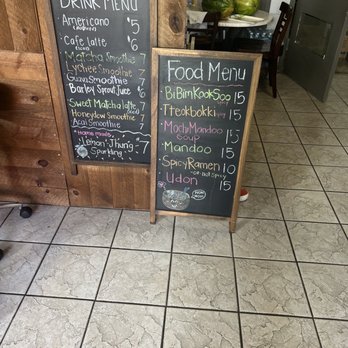 DRINK MENU
Americano $5
Cafe latte 6
Matcha Smoothie 7
Lychee Smoothie 7
Smoothie 7
Barley Sprout Juice 7
Sweet Matcha latte 7
Honeydew Smoothie 7
Acai Smoothie 7
Home made
Lemon-Thung 7
Sparkling
Food Menu
BiBimKookSoo 15
Tteokbokki 15
Mochi Mandoo 15
Soup
Mandoo 10
Spicy Ramen 15
or not Spicy
Udon 15